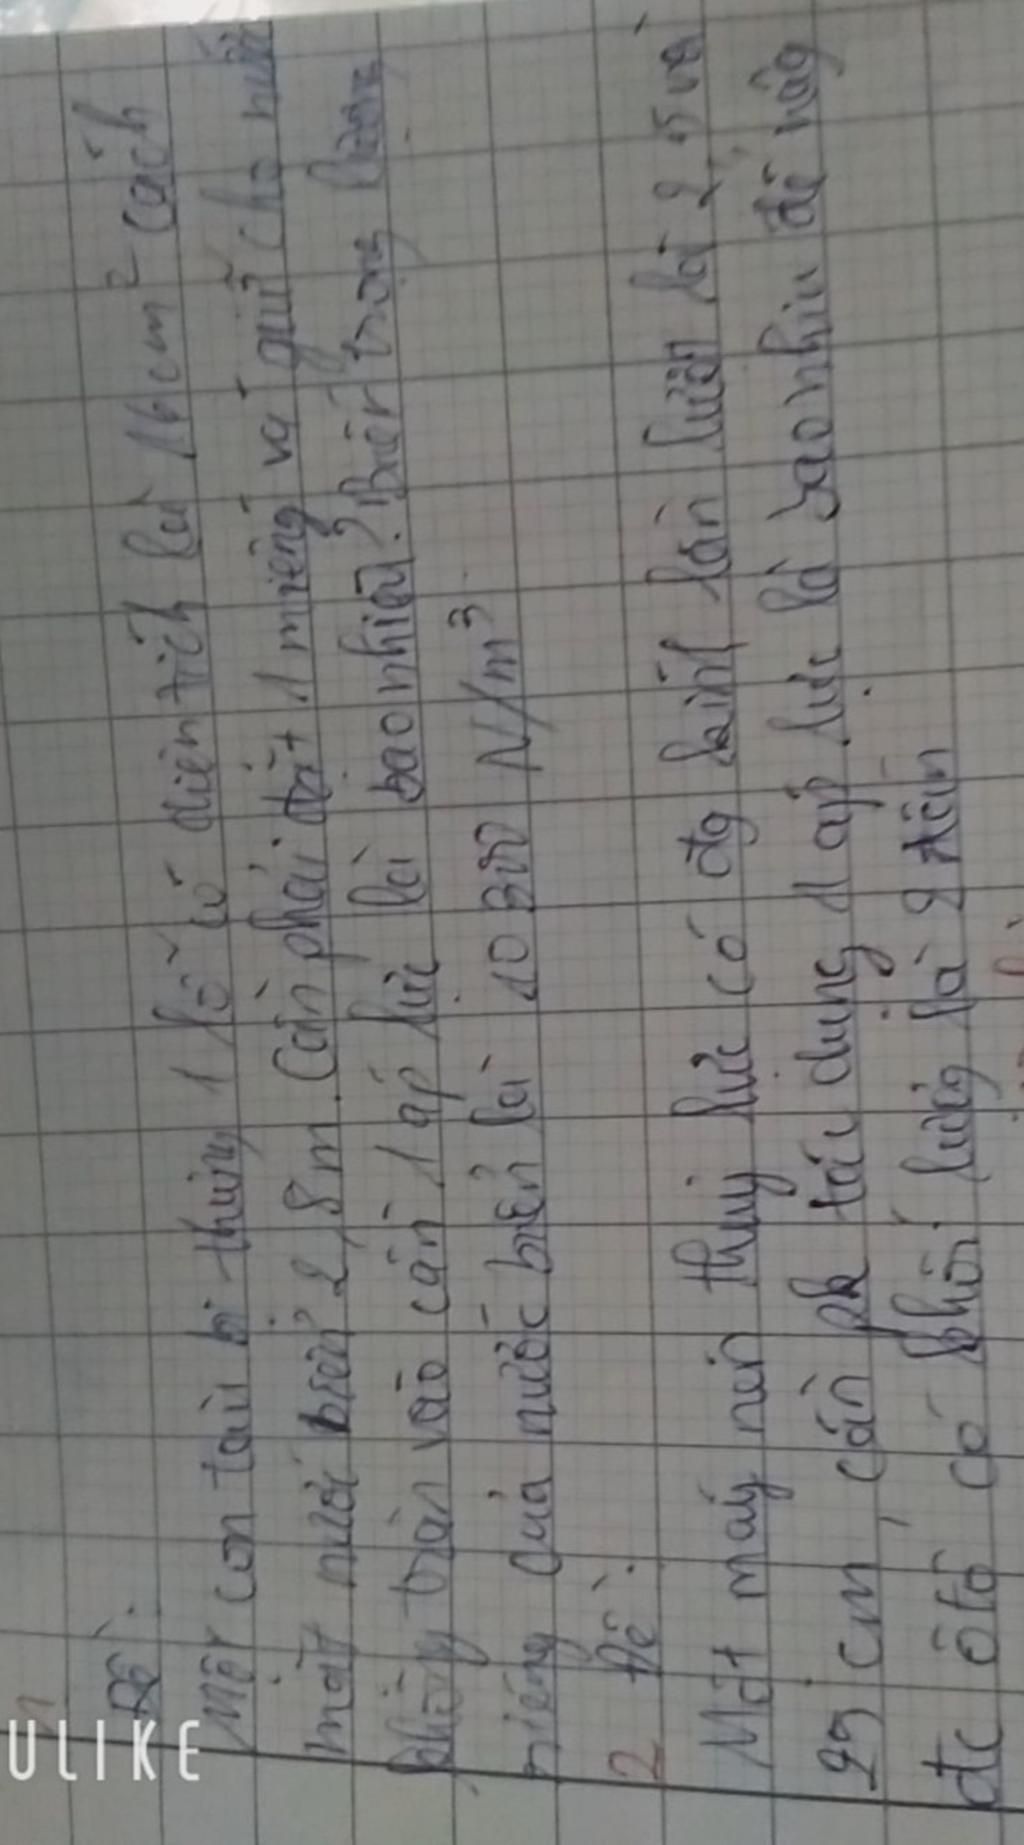 Đề:
Một con tàu bị thủng 1 lỗ có diện tích là 16cm² cách
mặt nước biển 2,8m. Cần phải đặt 1 miếng vá giữ cho nước
không tràn vào cần 1 áp lực là bao nhiêu? Biết trọng lượng
riêng của nước biển là 10300 N/m³
2 Đề:
Một máy nén thủy lực có đg kính lần lượt là 2,5 và
25 cm, cần pk tác dụng 1 áp lực là bao nhiêu để nâng
đc ôtô có khối lượng là 2 tấn
ULIKE